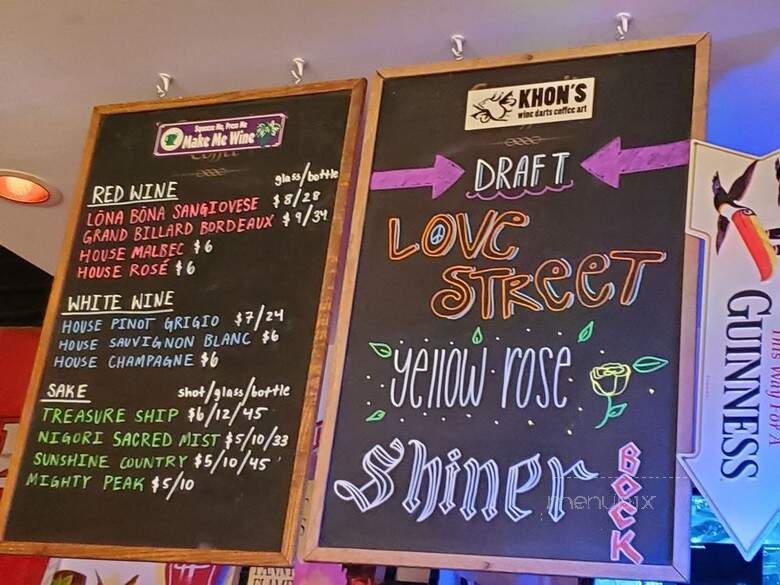 Squeeze Me, Press Me
Make Me Wine
Coffee
glass/bottle
RED WINE
LONA BONA SANGIOVESE $8/28
GRAND BILLARD BORDEAUX $9/34
HOUSE MALBEC $6
HOUSE ROSÉ $6
WHITE WINE
HOUSE PINOT GRIGIO $7/24
HOUSE SAUVIGNON BLANC $6
HOUSE CHAMPAGNE $6
SAKE shot/glass/bottle
TREASURE SHIP $6/12/45
NIGORI SACRED MIST $5/10/33
SUNSHINE COUNTRY $5/10/45
MIGHTY PEAK $5/10
KHON'S
wine darts coffee art
DRAFT
LOVE
STREET
yellow rose
Shiner
BOCK
menupix
THIS WAY FOR A
GUINNESS